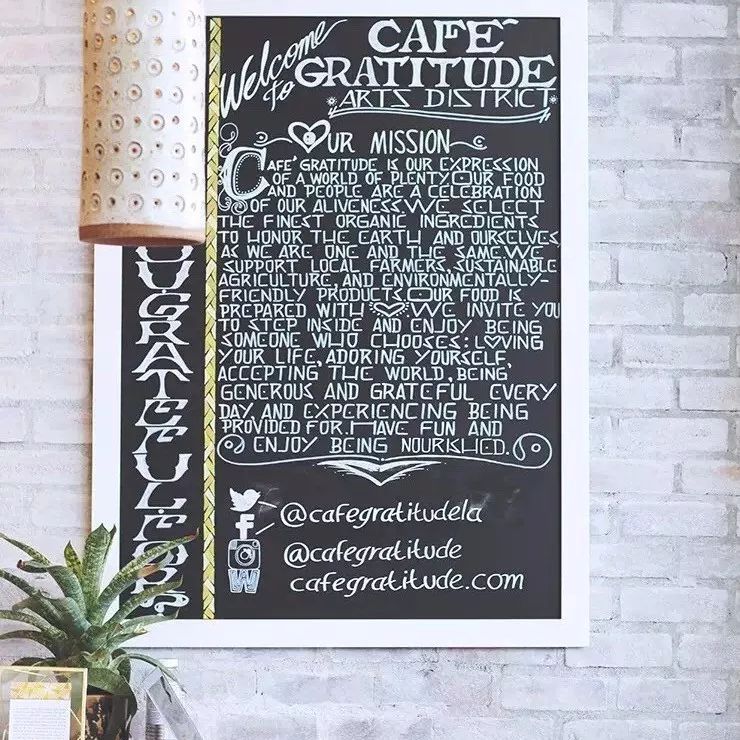 Welcome to
CAFE GRATITUDE
ARTS DISTRICT
OUR MISSION
CAFE GRATITUDE IS OUR EXPRESSION
OF A WORLD OF PLENTY OUR FOOD
AND PEOPLE ARE A CELEBRATION
OF OUR ALIVENESS WE SELECT
THE FINEST ORGANIC INGREDIENTS
TO HONOR THE EARTH AND OURSELVES,
AS WE ARE ONE AND THE SAME WE
SUPPORT LOCAL FARMERS, SUSTAINABLE
AGRICULTURE, AND ENVIRONMENTALLY-
FRIENDLY PRODUCTS. OUR FOOD IS
PREPARED WITH WE INVITE YOU
TO STEP INSIDE AND ENJOY BEING
SOMEONE WHO CHOOSES: LOVING
YOUR LIFE, ADORING YOURSELF,
ACCEPTING THE WORLD, BEING
GENEROUS AND GRATEFUL EVERY
DAY, AND EXPERIENCING BEING
PROVIDED FOR. HAVE FUN AND
ENJOY BEING NOURISHED.
@cafegratitudela
@cafegratitude
W cafegratitude.com
OU GRATEFUL FOR?